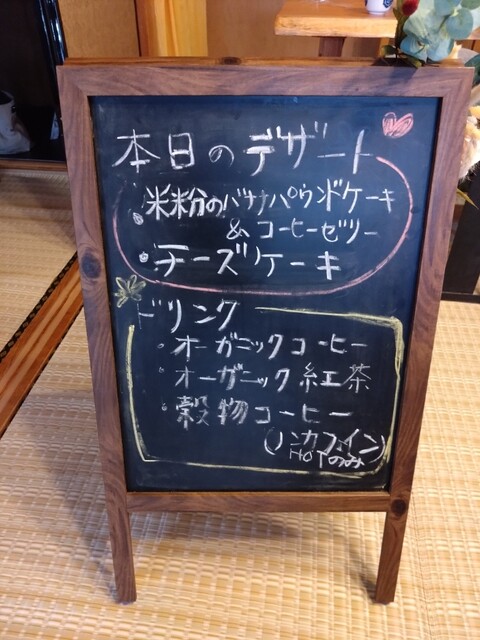 本日のデザート
・米粉のバナナパウンドケーキ
& コーヒーゼリー
・チーズケーキ
ドリンク
・オーガニックコーヒー
・オーガニック紅茶
・穀物コーヒー
(ノンカフェイン)
HOTのみ